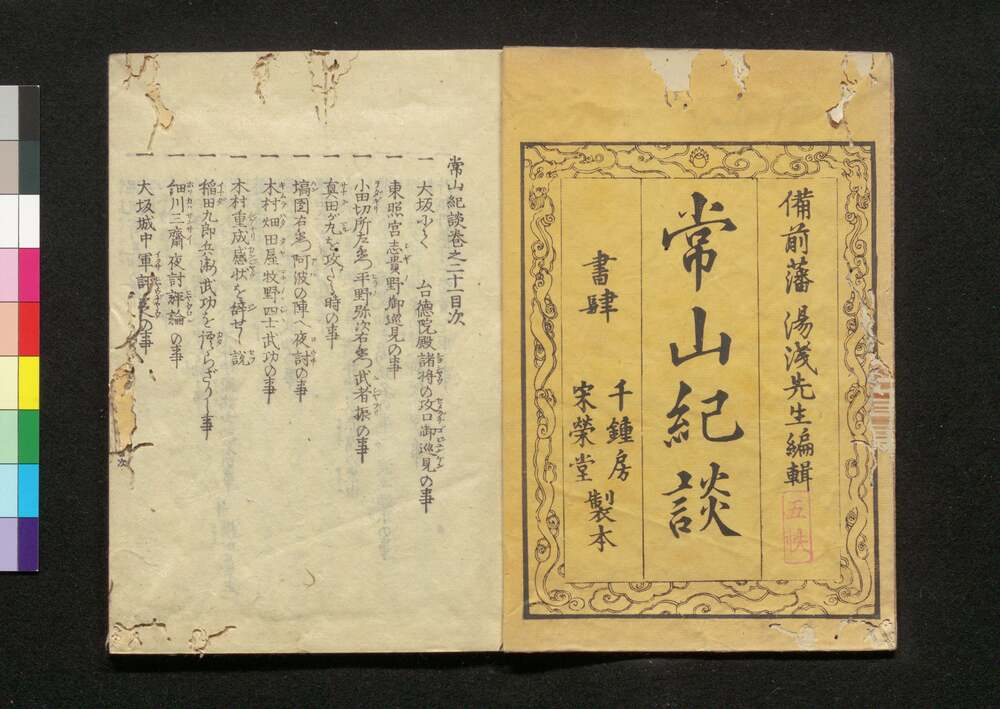 備前藩 湯浅先生編輯
五帙
常山紀談
書肆
千鍾房
宋榮堂
製本
常山紀談巻之二十一目次
一 大坂にて 台徳院殿諸将の攻口御巡見の事
一 東照宮志貴野御巡見の事
一 小田切所左衛門平野弥次右衛門武者振の事
一 真田が丸を攻し時の事
一 塙團右衛門阿波の陣へ夜討の事
一 木村畑田屋牧野四士武功の事
一 木村重成感状を辞せし説
一 稲田九郎兵衛武功を語らざりし事
一 細川三齋夜討評論の事
一 大坂城中軍評定の事